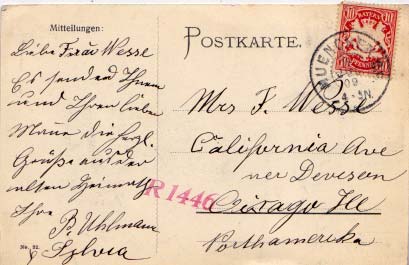 Mitteilungen:
Liebe Frau Wesse
Es senden Ihnen
und Ihrem lieben
Mann die herzl.
Grüße aus der
alten Heimath
Ihre
B. Uhlmann
& Sylvia
No. 32.
POSTKARTE.
BAYERN
10 10
PFENNIG
MUENCHEN
09
Mrs F. Wesse
California Ave
ner Devison
Cicago Ill
Northamerika
R1446